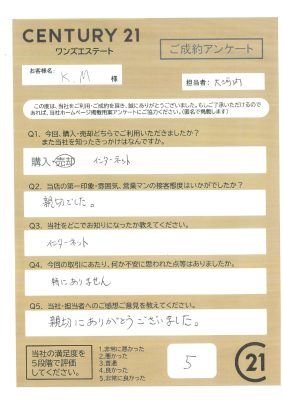 CENTURY 21
ワンズエステート
ご成約アンケート
お客様名:
K.M 様
担当者: 大河内
この度は、当社をご利用・ご成約を頂き、誠にありがとうございました。もしご了承いただけるので
あれば、当社ホームページ掲載用案アンケートにご協力ください。(匿名で掲載します)
Q1. 今回、購入・売却どちらでご利用いただきましたか?
また当社を知ったきっかけはなんですか。
購入・売却 インターネット
Q2. 当店の第一印象・雰囲気、営業マンの接客態度はいかがでしたか?
親切でした。
Q3. 当社をどこでお知りになったか教えてください。
インターネット
Q4. 今回の取引にあたり、何か不安に思われた点等はありましたか。
特にありません
Q5. 当社・担当者へのご感想ご意見を教えてください。
親切にありがとうございました。
当社の満足度を
5段階で評価
してください。
1.非常に悪かった
2.悪かった
3.普通
4.良かった
5.非常に良かった
5
C21